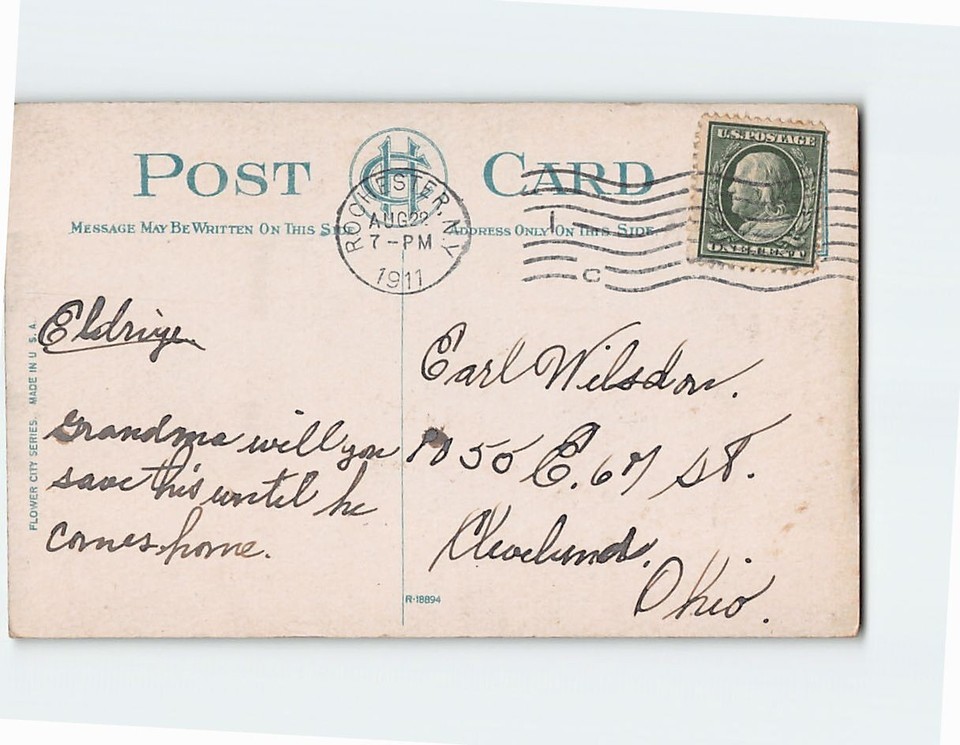 POST CARD
MESSAGE MAY BE WRITTEN ON THIS SIDE
ADDRESS ONLY ON THIS SIDE
ROCHESTER, N.Y.
AUG 22
7-PM
1911
1
C
U.S. POSTAGE
ONE CENT 1
FLOWER CITY SERIES. MADE IN U.S.A.
Grandma will you
save this until he
comes home.
Earl Wilsdon.
1050 E. 67 St.
Cleveland,
Ohio.
R-18894